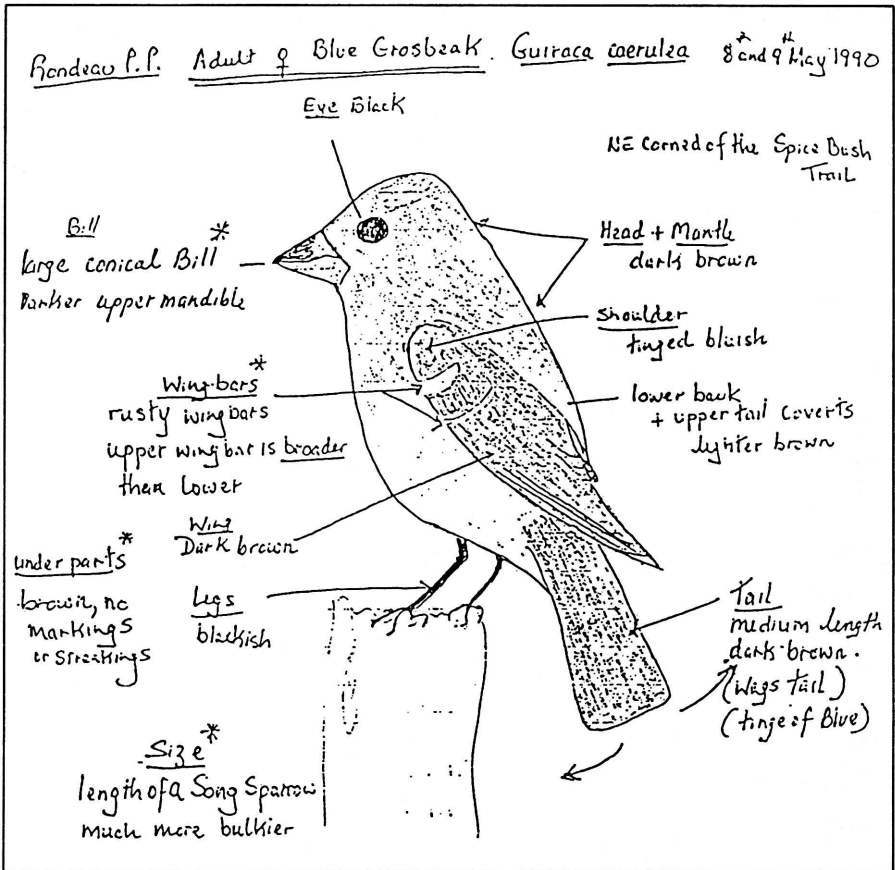 Rondeau P.P. Adult ♀ Blue Grosbeak. Guiraca caerulea 8th and 9th May 1990
Eye Black
NE corned of the Spice Bush
Trail
Bill
large conical Bill*
Darker upper mandible
Head + Mantle
dark brown
Shoulder
tinged bluish
Wing-bars*
rusty wing bars
upper wing bar is broader
than lower
lower back
+ upper tail coverts
lighter brown
Wing
Dark brown
under parts*
brown, no
markings
or streakings
Legs
blackish
Tail
medium length
dark brown.
(Wags tail)
(tinge of Blue)
Size*
length of a Song Sparrow
much more bulkier